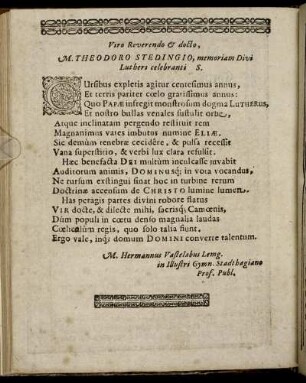 Viro Reverendo & docto,
M. THEODORO STEDINGIO, memoriam Divi
Lutheri celebranti S.
CUrsibus expletis agitur centesimus annus,
Et terris pariter cœlo gratissimus annus:
Quo PAPÆ infregit monstrosum dogma LUTHERUS,
Et nostro bullas venales sustulit orbe,
Atque inclinatam pergendo restituit rem
Magnanimus vates imbutus numine ELIÆ.
Sic demùm tenebræ cecidêre, & pulsa recessit
Vana superstitio, & verbi lux clara refulsit.
Hæc benefacta DEI multùm inculcasse juvabit
Auditorum animis, DOMINUMq; in vota vocandus,
Ne rursum exstingui sinat hoc in turbine rerum
Doctrinæ accensum de CHRISTO lumine lumen.
Has peragis partes divini robore flatus
VIR docte, & dilecte mihi, sacrisq; Camœnis,
Dùm populi in cœtu denso magnalia laudas
Cœlicolûm regis, quo solo talia fiunt.
Ergo vale, inq; domum DOMINI converte talentum.
M. Hermannus Vastelabus Lemg.
in Illustri Gymn. Stadthagiano
Prof. Publ.